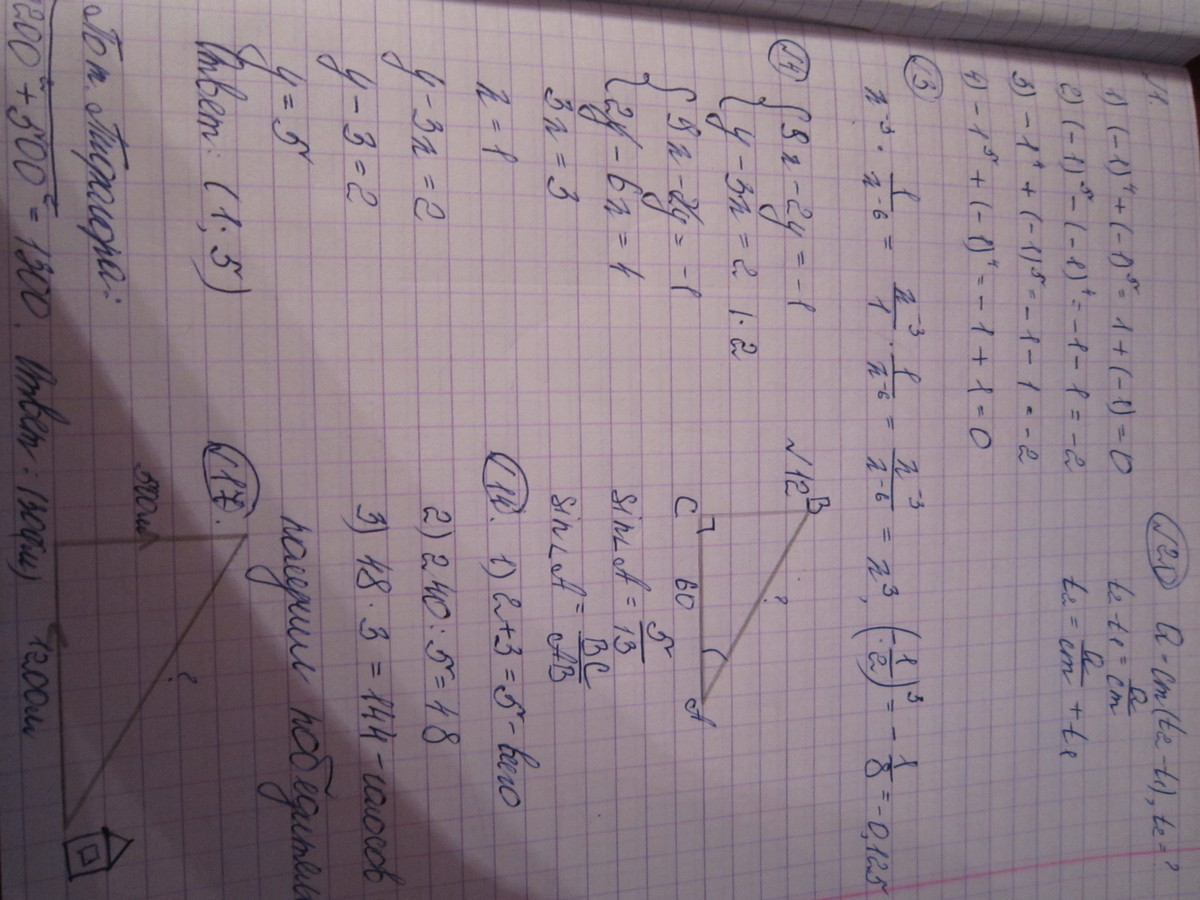 1.
1) (-1)⁴ + (-1)⁵ = 1 + (-1) = 0
2) (-1)⁵ - (-1)⁴ = -1 - 1 = -2
3) -1⁴ + (-1)⁵ = -1 - 1 = -2
4) -1⁵ + (-1)⁴ = -1 + 1 = 0
№20 Q = cm(t₂ - t₁), t₂ = ?
t₂ - t₁ = Q/cm
t₂ = Q/cm + t₁
№3
x⁻³ · 1/x⁻⁶ = x⁻³/1 · 1/x⁻⁶ = x⁻³/x⁻⁶ = x³, (-1/2)³ = -1/8 = -0,125
№4 { 3x - 2y = -1
y - 3x = 2 | · 2
{ 3x - 2y = -1
2y - 6x = 4
3x = 3
x = 1
y - 3x = 2
y - 3 = 2
y = 5
Ответ: (1; 5)
№12
B
?
C 60 A
Sin∠A = 5/13
Sin∠A = BC/AB
№16. 1) 2 + 3 = 5 - всего
2) 240 : 5 = 48
3) 48 · 3 = 144 - голосов
получил победитель
№17.
500м
?
1200м
По т. Пифагора:
1200² + 500² = 1300. Ответ: 1300(м)